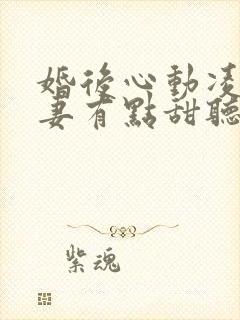 婚後心動凌
妻有點甜聽
紫魂